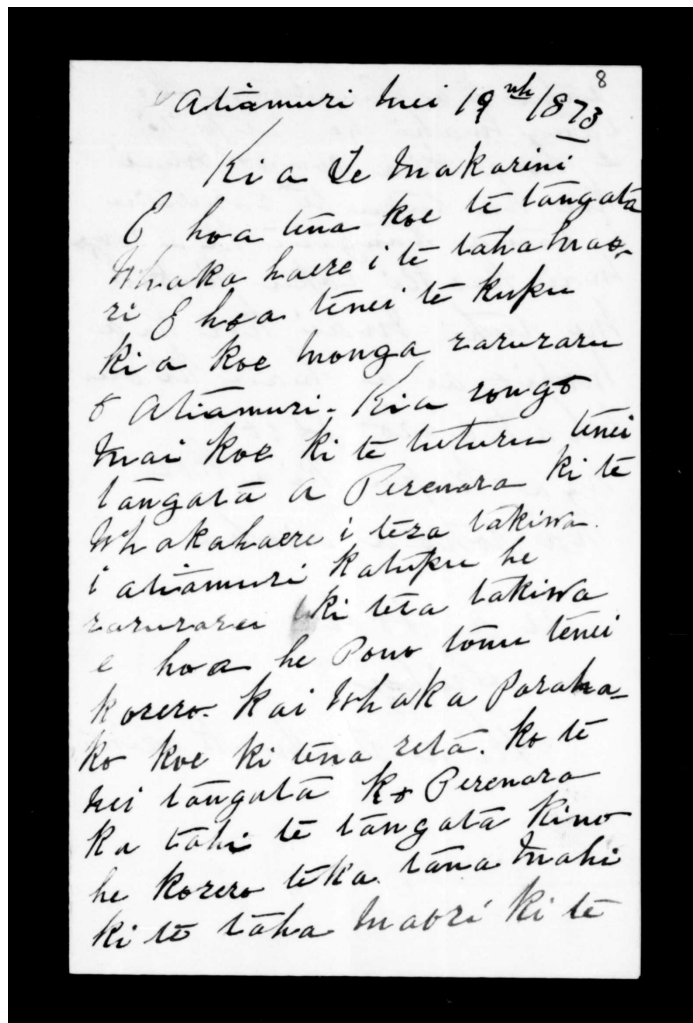 8
Atiamuri Mei 19 nth/1873
Kia Te Makarini
E hoa tena koe te tangata
Whaka haere i te taha Mao-
ri E hoa tenei te kupu
ki a koe monga raruraru
o Atiamuri. Kia rongo
Mai koe ki te tuturu tenei
tangata a Perenara ki te
Whakahaere i tera takiwa.
i atiamuri katupu he
raruraru ki tera takiwa
e hoa he Pono tonu tenei
korero. Kai Whaka Paraha-
ko koe ki tena reta. ko te
nei tangata ko Perenara
ka tahi te tangata kino
he korero teka tana Mahi
ki te taha Maori ki te